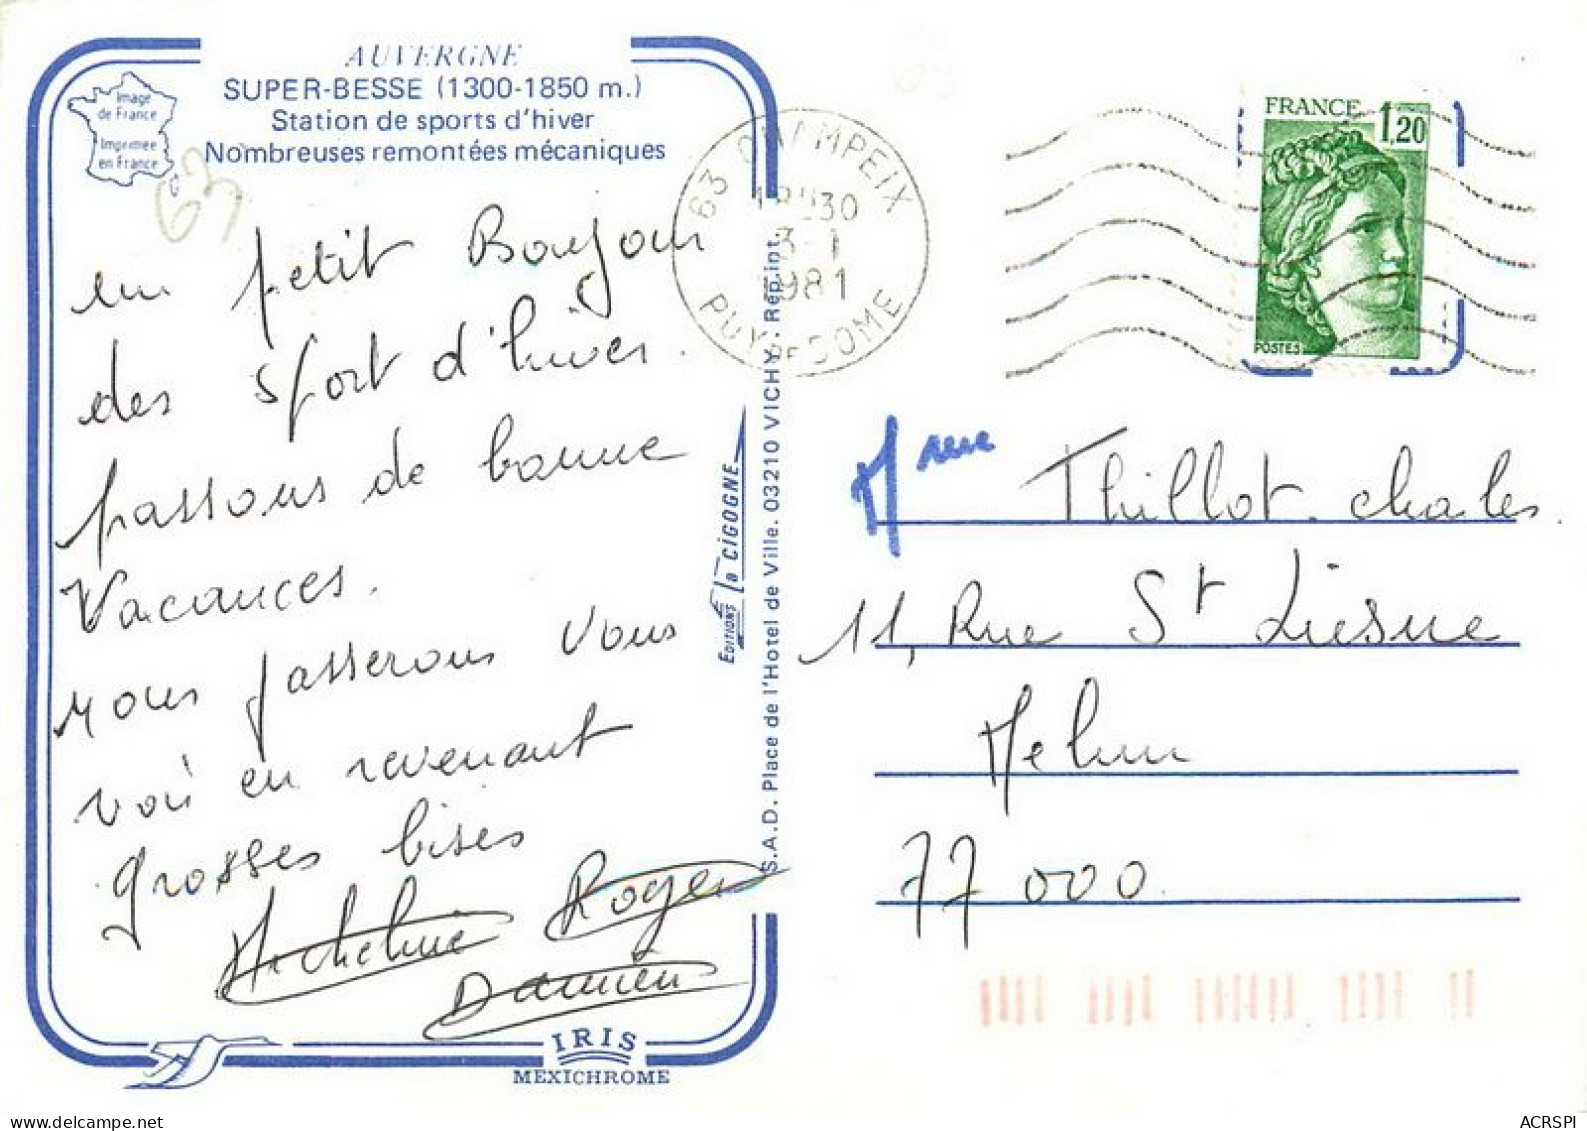 AUVERGNE
SUPER-BESSE (1300-1850 m.)
Station de sports d'hiver
Nombreuses remontées mécaniques
Image
de France
Imprimée
en France
63
un petit Bonjour
des sport d'hiver.
passons de bonne
Vacances.
nous passerons vous
voir en revenant
grosses bises
Micheline Roger
Damien
IRIS
MEXICHROME
EDITIONS la CIGOGNE
S.A.D. Place de l'Hotel de Ville. 03210 VICHY. Reprint.
63 CHAMPEIX
18H30
3-1
1981
PUY DE DOME
FRANCE 1,20
POSTES
Mme Thillot. chales.
11, Rue St Liesne
Melun
77 000
ACRSPI